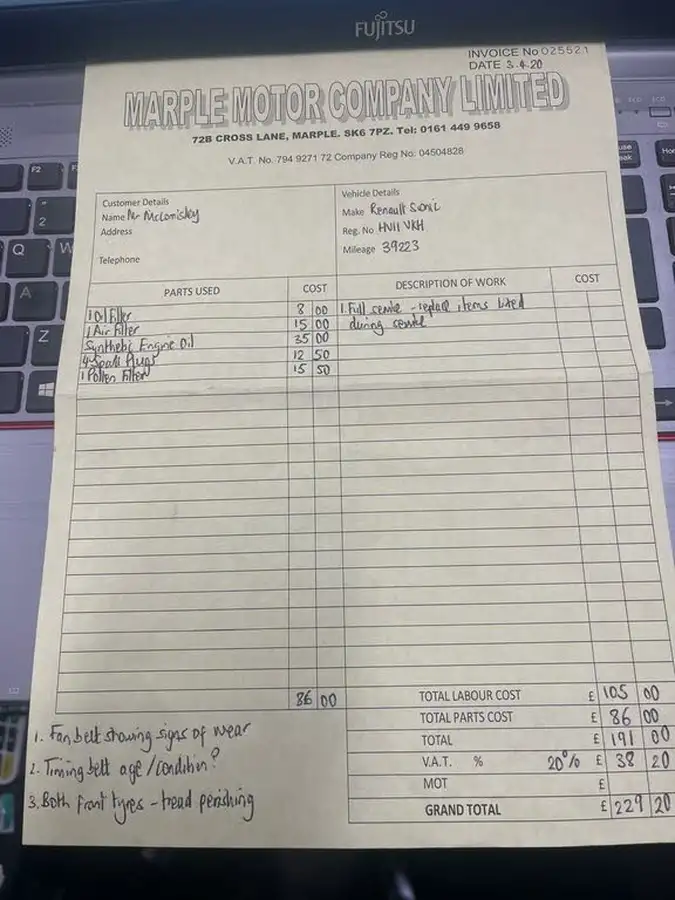 FUJITSU
INVOICE No 025521
DATE 3.4.20
MARPLE MOTOR COMPANY LIMITED
72B CROSS LANE, MARPLE. SK6 7PZ. Tel: 0161 449 9658
V.A.T. No. 794 9271 72 Company Reg No: 04504828
Customer Details
Name Mr McComiskey
Address
Telephone
Vehicle Details
Make Renault Scenic
Reg. No HV11 VKH
Mileage 39223
PARTS USED COST DESCRIPTION OF WORK COST
1 Oil Filter 8 00
1 Air Filter 15 00
Synthetic Engine Oil 35 00
4 Spark Plugs 12 50
1 Pollen Filter 15 50
1. Full service - replace items listed
during service
86 00
TOTAL LABOUR COST £ 105 00
TOTAL PARTS COST £ 86 00
TOTAL £ 191 00
V.A.T. % 20% £ 38 20
MOT £
GRAND TOTAL £ 229 20
1. Fan belt showing signs of wear
2. Timing belt age/condition?
3. Both front tyres - tread perishing
F2
2
Q
W
A
Z